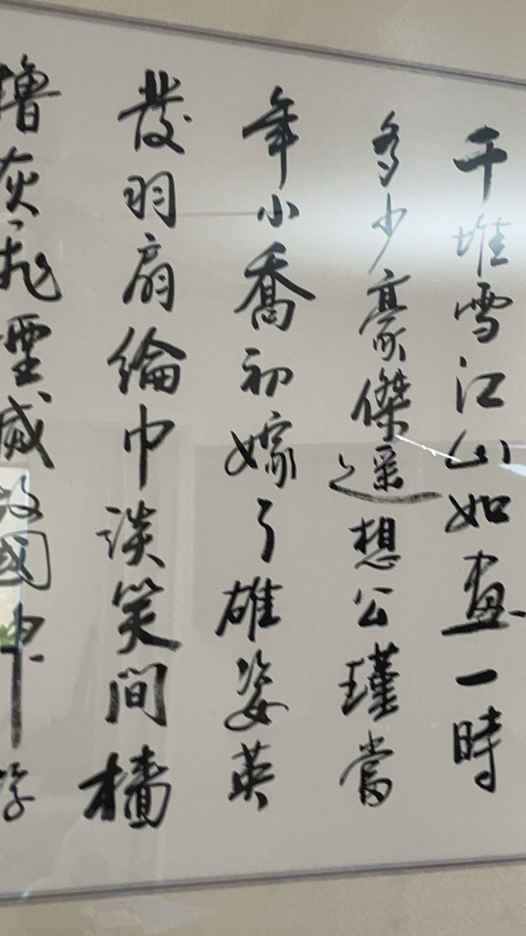 千堆雪江山如畫一時
多少豪傑遥想公瑾當
年小喬初嫁了雄姿英
發羽扇綸巾談笑間檣
櫓灰飛煙滅故國神游